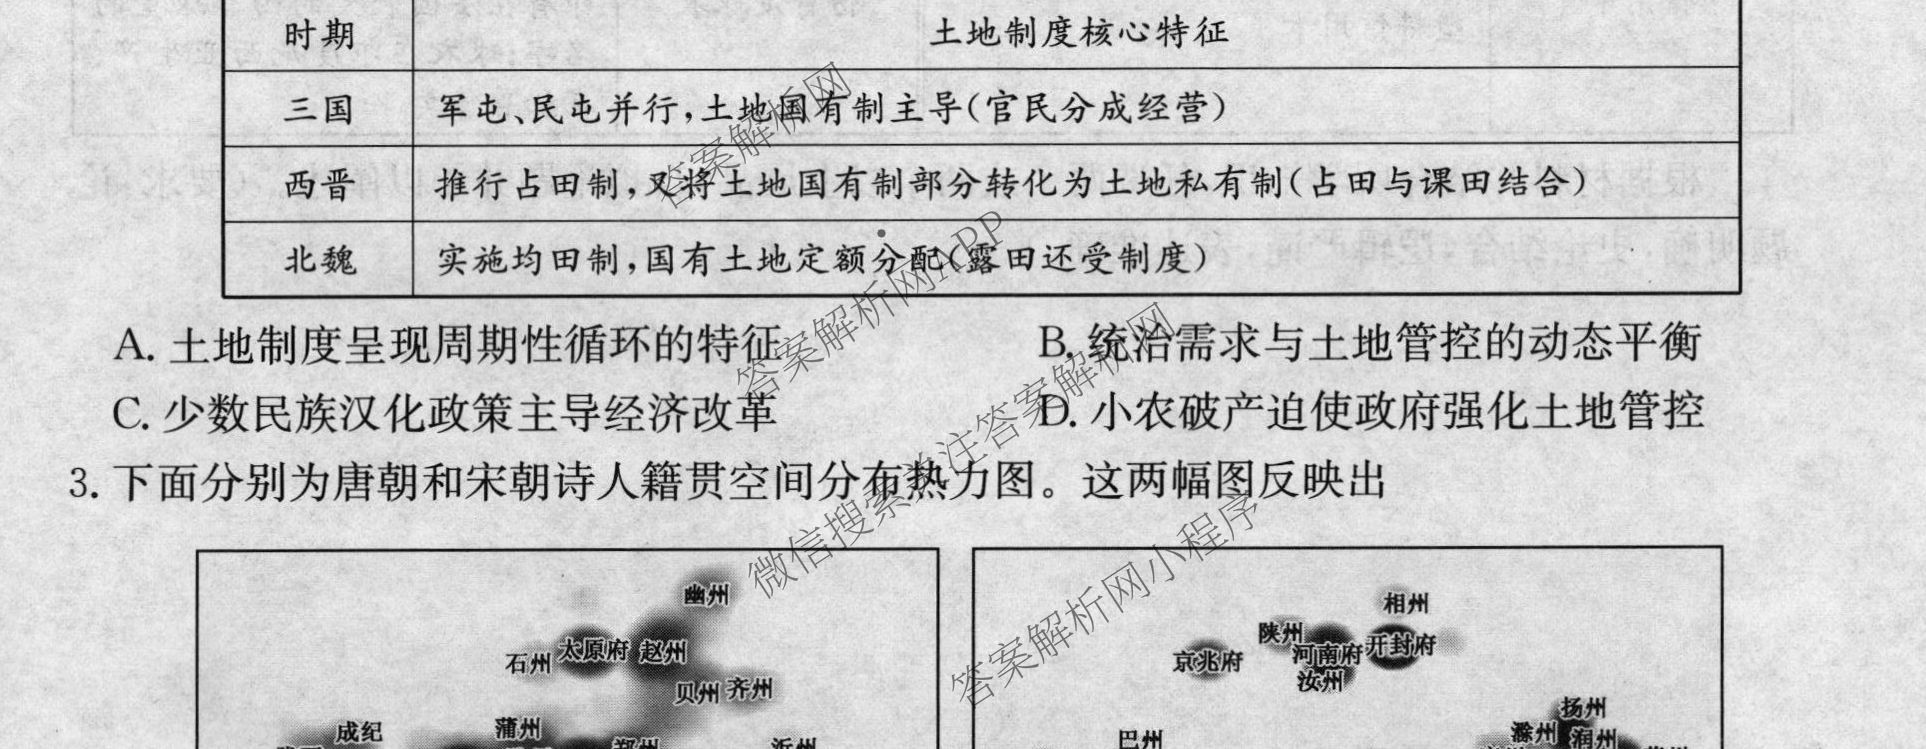 时期 土地制度核心特征
三国 军屯、民屯并行,土地国有制主导(官民分成经营)
西晋 推行占田制,又将土地国有制部分转化为土地私有制(占田与课田结合)
北魏 实施均田制,国有土地定额分配(露田还受制度)
A. 土地制度呈现周期性循环的特征
B. 统治需求与土地管控的动态平衡
C. 少数民族汉化政策主导经济改革
D. 小农破产迫使政府强化土地管控
3. 下面分别为唐朝和宋朝诗人籍贯空间分布热力图。这两幅图反映出
幽州
石州 太原府 赵州
贝州 齐州
成纪 蒲州
郑州 沂州
相州
陕州 河南府 开封府
京兆府
汝州
扬州
巴州 滁州 润州
答案解析网
答案解析网APP
微信搜索关注答案解析网
答案解析网小程序